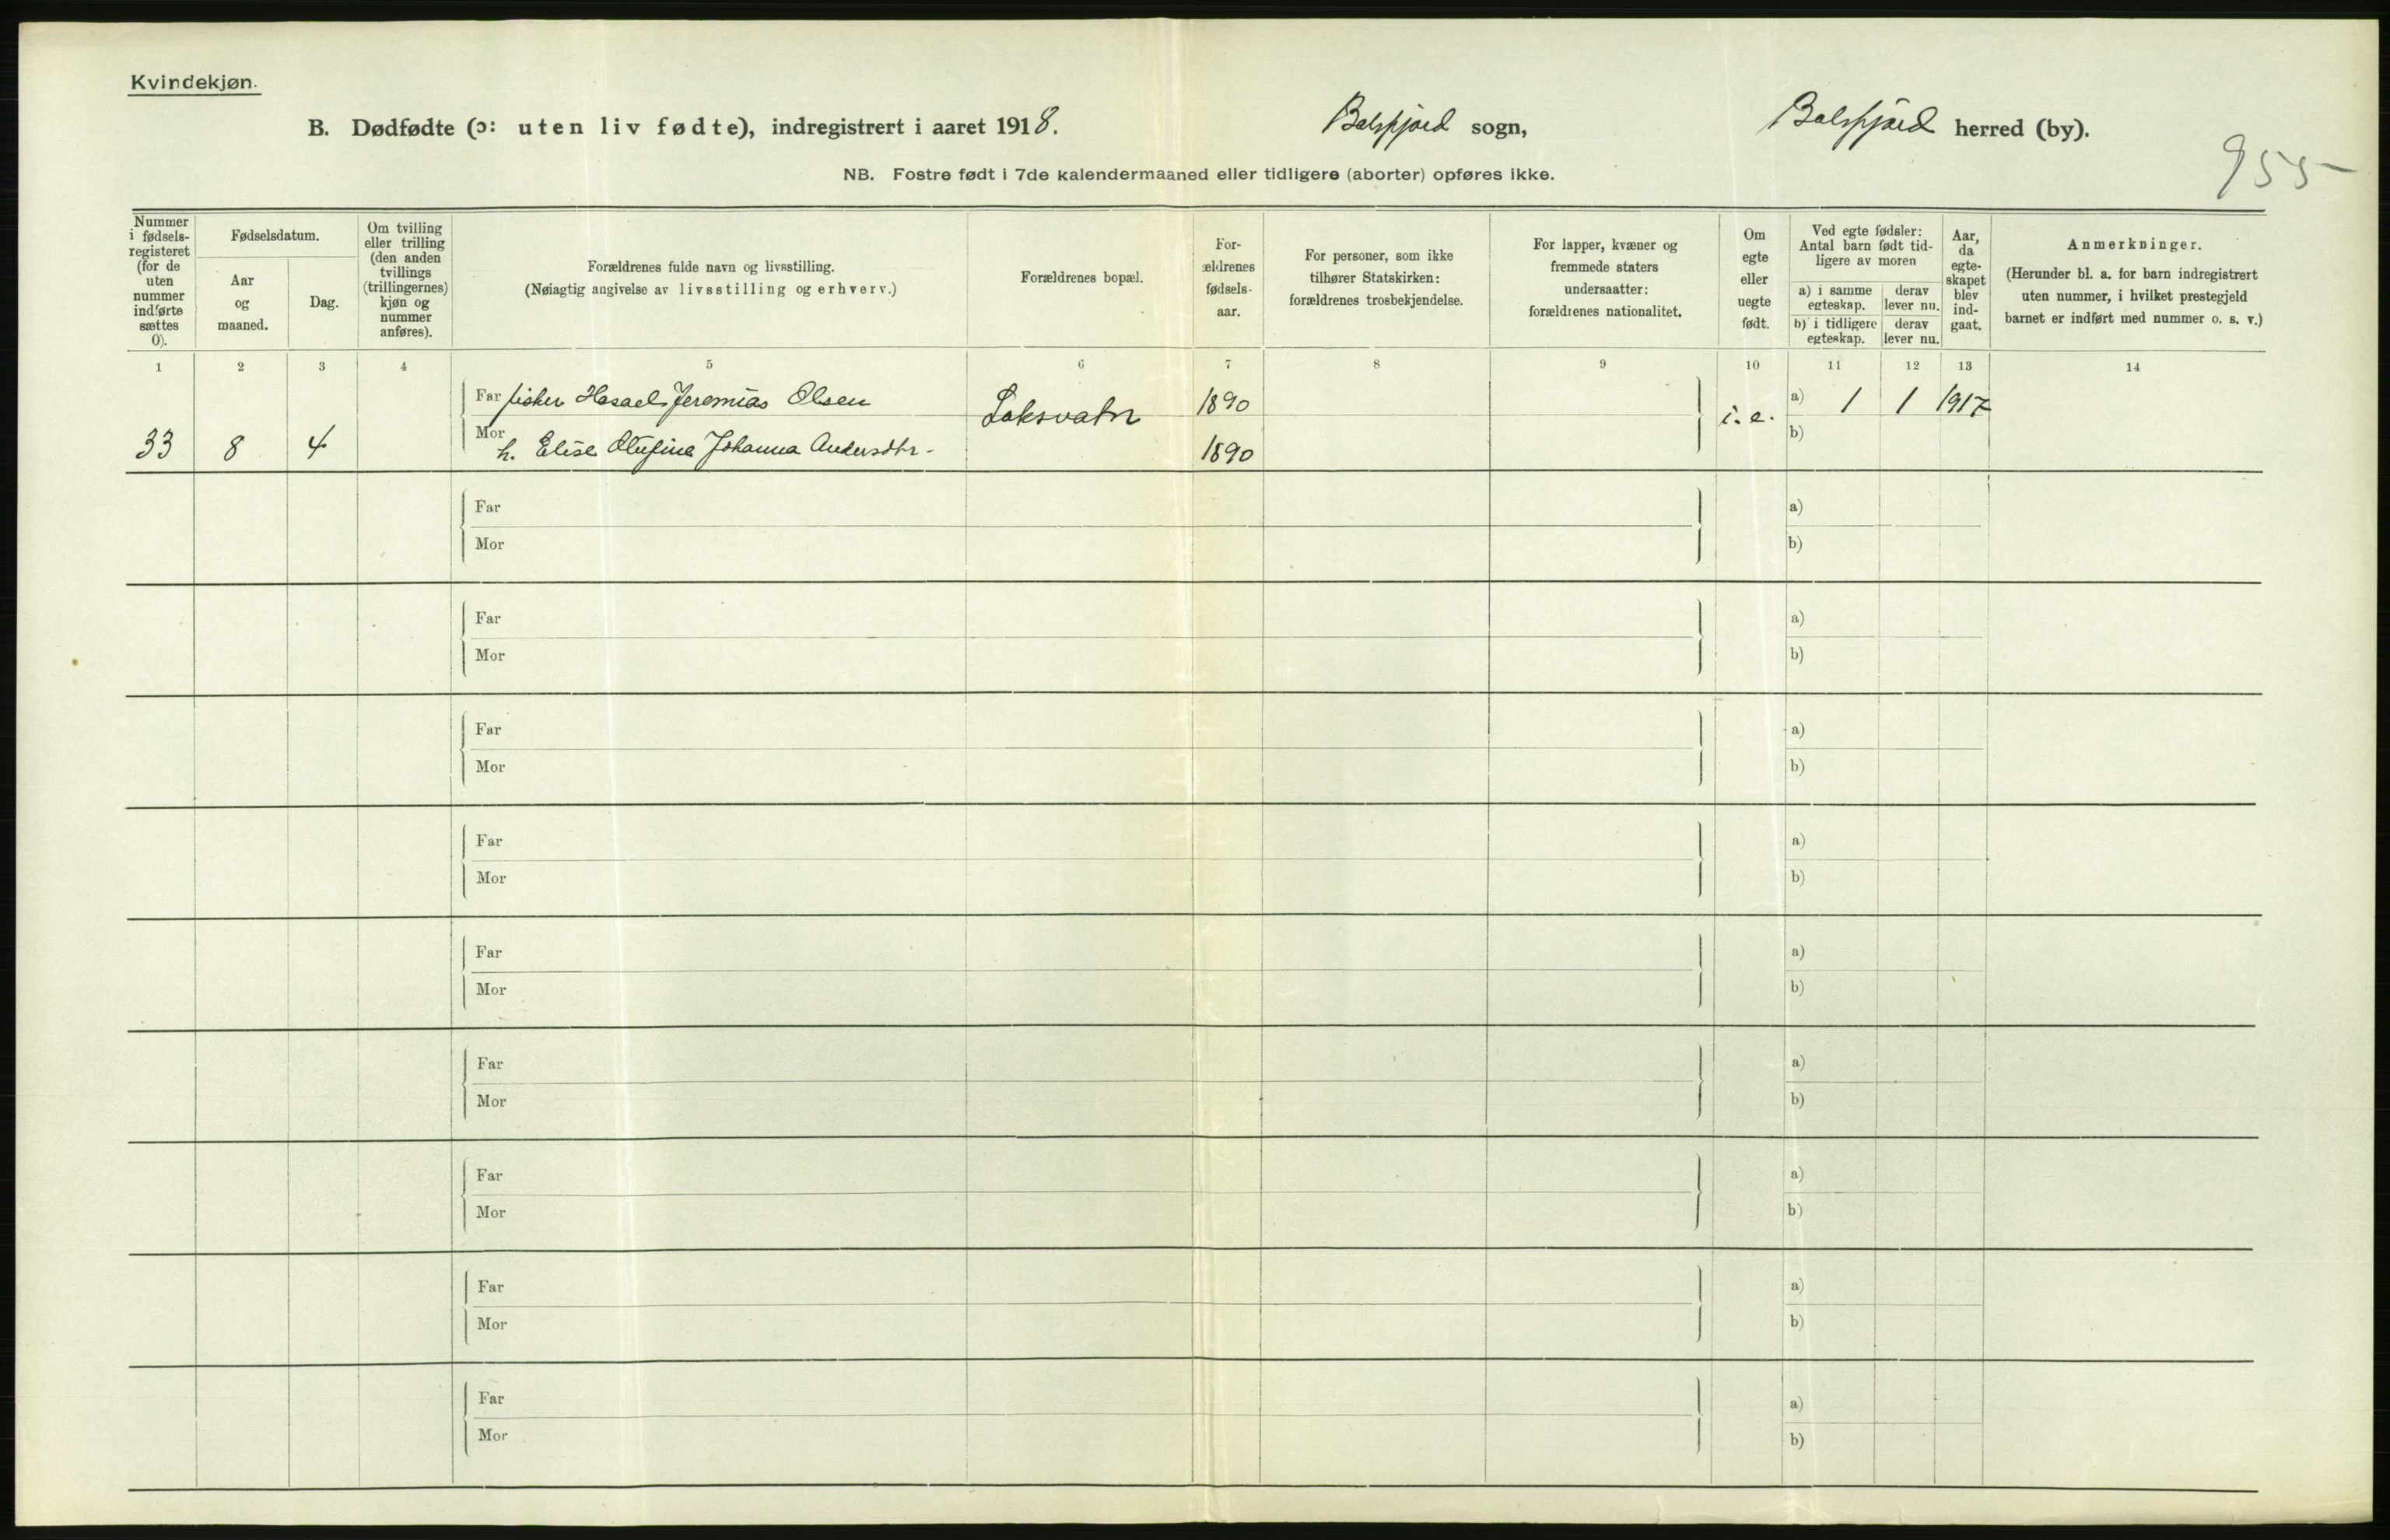 Kvindekjøn.
B. Dødfødte (ɔ: uten liv fødte), indregistrert i aaret 1918. Balsfjord sogn, Balsfjord herred (by).
955
NB. Fostre født i 7de kalendermaaned eller tidligere (aborter) opføres ikke.
Nummer i fødsels-registeret (for de uten nummer indførte sættes 0).
Fødselsdatum.
Aar og maaned.
Dag.
Om tvilling eller trilling (den anden tvillings (trillingernes) kjøn og nummer anføres).
Forældrenes fulde navn og livsstilling.
(Nøiagtig angivelse av livsstilling og erhverv.)
Forældrenes bopæl.
For-ældrenes fødsels-aar.
For personer, som ikke tilhører Statskirken: forældrenes trosbekjendelse.
For lapper, kvæner og fremmede staters undersaatter: forældrenes nationalitet.
Om egte eller uegte født.
Ved egte fødsler: Antal barn født tid-ligere av moren
a) i samme egteskap. derav lever nu.
b) i tidligere egteskap. derav lever nu.
Aar, da egte-skapet blev ind-gaat.
Anmerkninger.
(Herunder bl. a. for barn indregistrert uten nummer, i hvilket prestegjeld barnet er indført med nummer o. s. v.)
1 2 3 4 5 6 7 8 9 10 11 12 13 14
Far fisker Hasael Jeremias Olsen Laksvatn 1890 i. e. a) 1 1 1917
33 8 4 Mor h. Elise Olufine Johanna Andersdtr- 1890 b)
Far a)
Mor b)
Far a)
Mor b)
Far a)
Mor b)
Far a)
Mor b)
Far a)
Mor b)
Far a)
Mor b)
Far a)
Mor b)
Far a)
Mor b)
Far a)
Mor b)